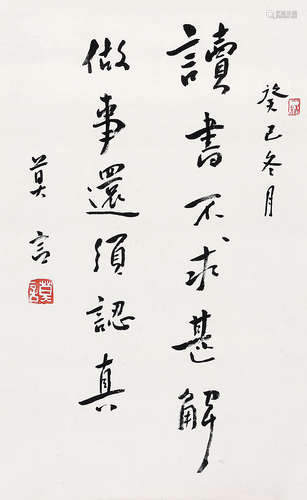 癸巳冬月
讀書不求甚解
做事還須認真
莫言